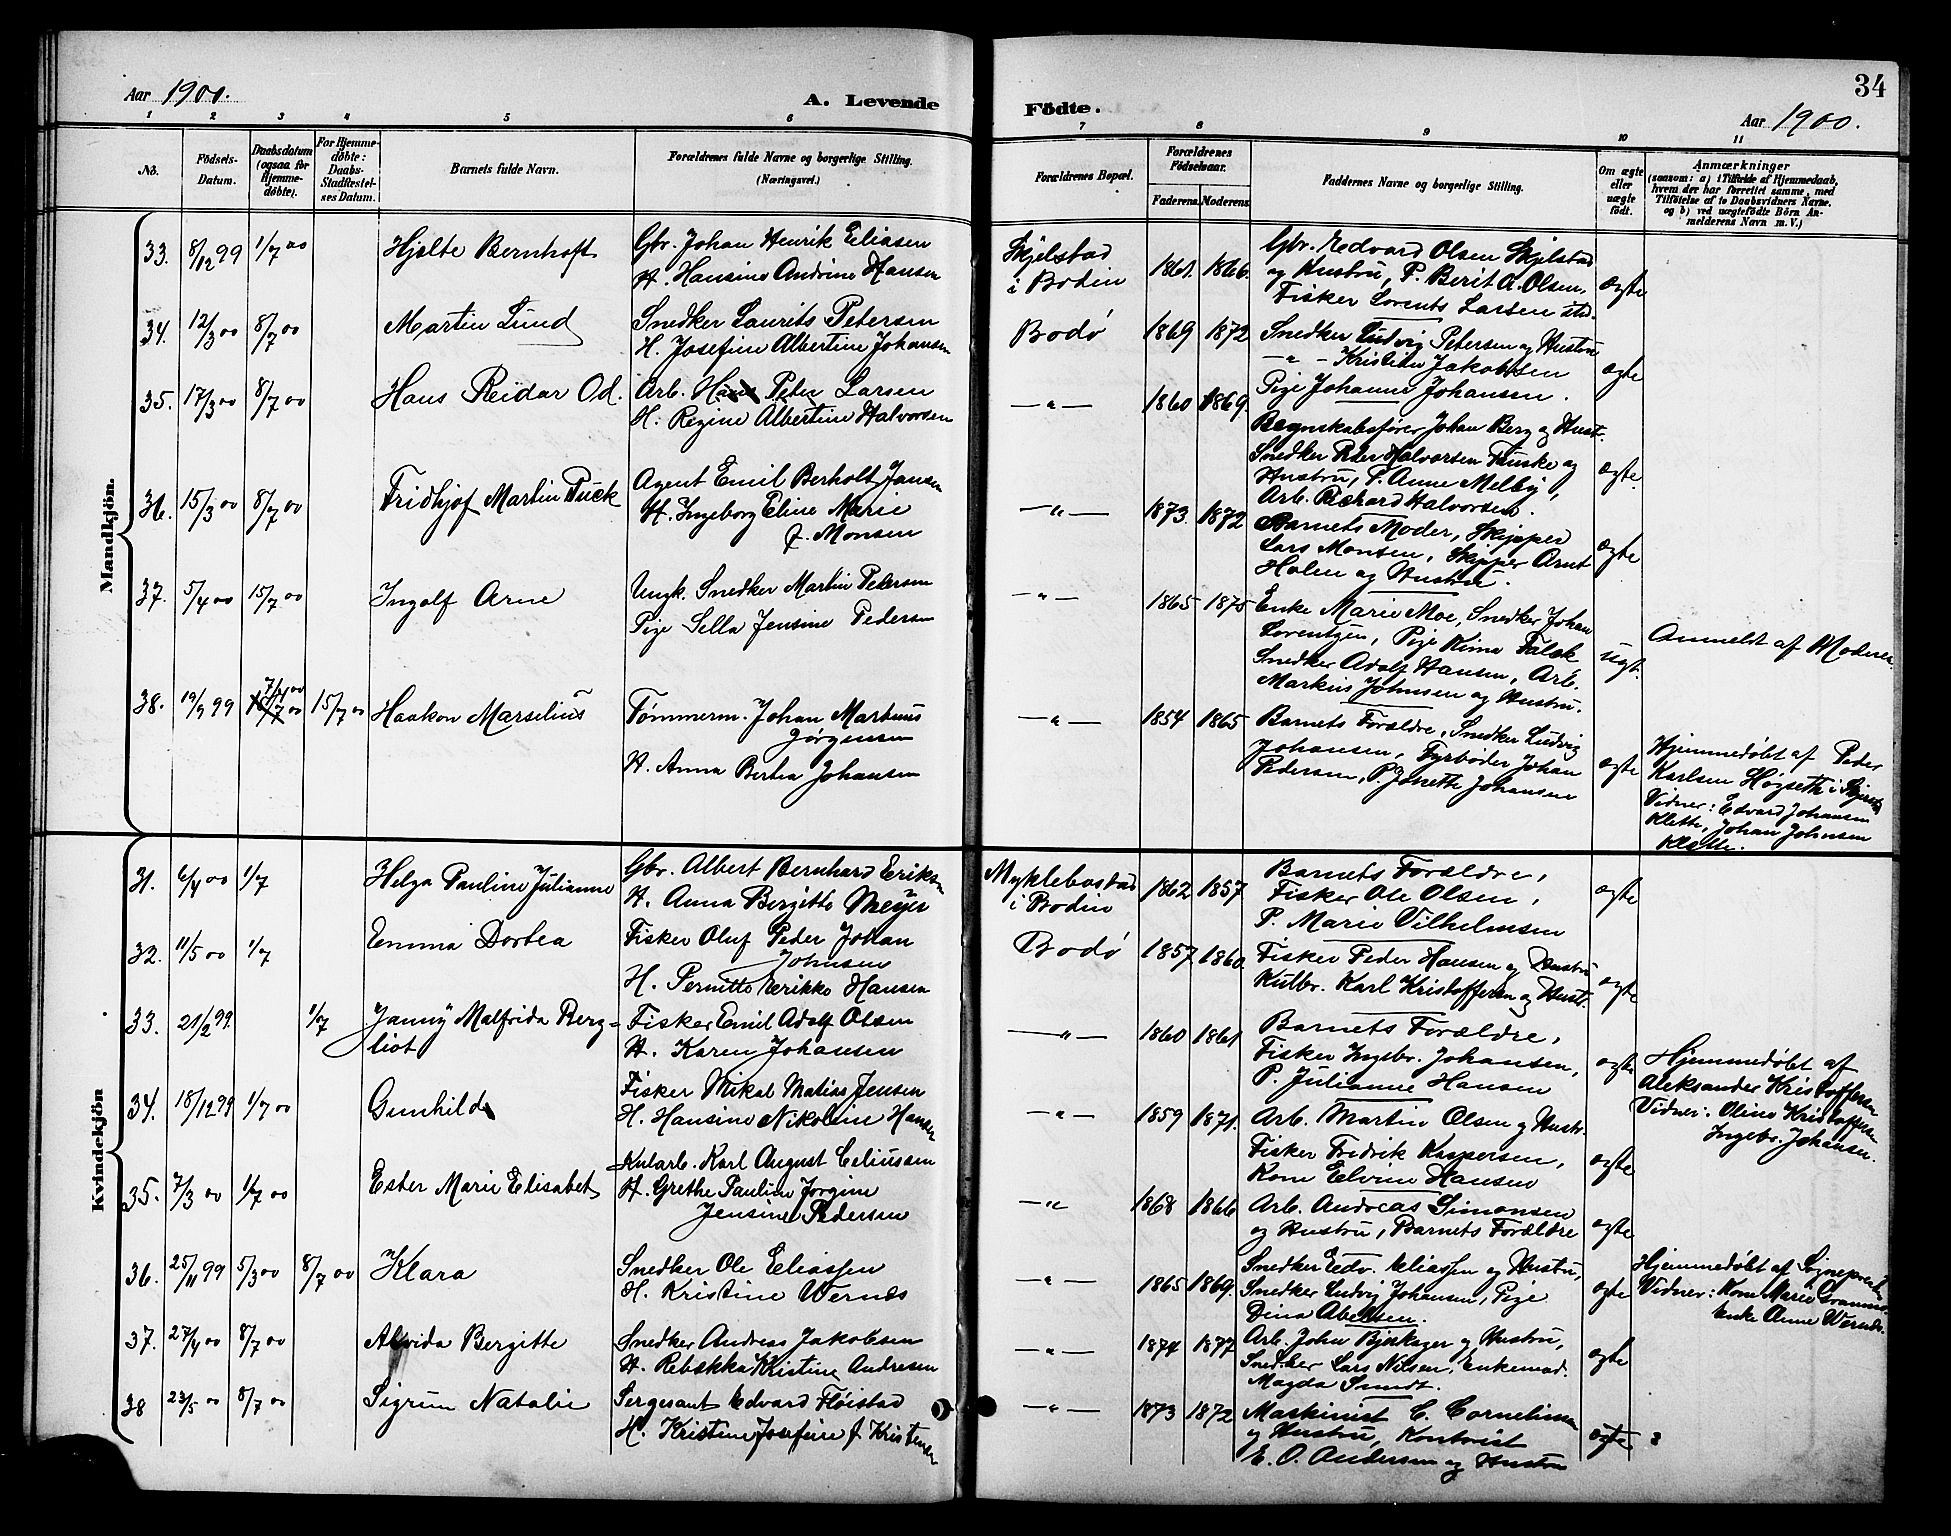 34
Aar 1900.
A. Levende
Fødte.
Aar 1900.
1 2 3 4 5 6
7 8 9 10 11
No.
Fødsels-Datum.
Daabsdatum (ogsaa for Hjemmedøbte).
For Hjemmedøbte: Daabs-Stadfæstelses Datum.
Barnets fulde Navn.
Forældrenes fulde Navne og borgerlige Stilling. (Næringsvei.)
Forældrenes Bopæl.
Forældrenes Fødselsaar.
Faderens. Moderens.
Faddernes Navne og borgerlige Stilling.
Om ægte eller uægte født.
Anmærkninger
(saasom: a) i Tilfælde af Hjemmedaab,
hvem der har forrettet samme, med
Tilføielse af to Daabsvidners Navne.
og b) ved uægtefødte Börn An-
melderens Navn m. V.)
Mandkjön.
33. 8/12 99 1/7 00 Hjelte Bernhoft
Gbr. Johan Henrik Eliasen
H. Hansine Andrine Hansen
Skjelstad
i Bodin
1861. 1866.
Gbr. Edvard Olsen Skjelstad
og Hustru, P. Berit A. Olsen,
Fisker Lorents Larsen std.
ægte
34. 12/3 00 8/7 00 Martin Lund
Snedker Laurits Petersen
H. Josefine Albertine Johansen
Bodø
1869 1872
Snedker Ludvig Petersen og Hustru
— " — Kristian Jakobsen
Pige Johanne Johansen.
ægte
35. 17/3 00 8/7 00 Hans Reidar Od.
Arb. Hans Peter Larsen
H. Regine Albertine Halvorsen
— " —
1860 1869.
Regnskabsfører Johan Berg og Hust.
Snedker Peder Halvorsen Fuske og
Hustru, P. Anne Melby,
Arb. Richard Halvorsen.
ægte
36. 15/3 00 8/7 00 Fridhjof Martin Puck
Agent Emil Berholt Jansen
H. Ingeborg Eline Marie
f. Monsen
— " —
1873. 1872
Barnets Moder, Skipper
Lars Monsen, Skipper Arnt
Holen og Hustru.
ægte
37. 5/4 00 15/7 00 Ingolf Arne
Ungk. Snedker Martin Petersen
Pige Sella Jensine Pedersen
— " —
1865 1875
Enke Marie Moe, Snedker Johan
Lorentzen, Pige Kima Falck
Snedker Adolf Hansen, Arb.
Markus Johnsen og Hustru.
ugt.
Anmeldt af Moderen
38. 19/9 99 15/7 00 Haakon Marselius
Tømmerm. Johan Martinus
Jørgensen
H. Anna Bertea Johansen
— " —
1854 1865
Barnets Forældre, Snedker Ludvig
Johansen, Fyrbøder Johan
Pedersen, P. Jonette Johansen
ægte
Hjemmedøbt af Peder
Karlsen Høgseth i
Vidner: Edvard Johansen
Klette, Johan Johnsen
Klette.
Kvindekjön
31. 6/4 00 1/7 Helga Pauline Julianne
Gbr. Albert Bernhard Eriksen
H. Anna Bergitte Meyer
Myklebostad
i Bodin
1862 1857
Barnets Forældre,
Fisker Ole Olsen,
P. Marie Vilhelmsen
ægte
32. 11/5 00 1/7 Emma Dortea
Fisker Oluf Peder Johan
Johnsen
H. Pernitte Erikke Hansen
Bodø
1857 1860.
Fisker Peder Hansen og Hustru
Kulbr. Karl Kristoffersen og Hust.
ægte
33. 21/2 99. 1/7 Janny Malfrida Berg-
liot
Fisker Emil Adolf Olsen
H. Karen Johansen
— " —
1860 1861
Barnets Forældre,
Fisker Ingebr. Johansen,
P. Julianne Hansen
ægte
Hjemmedøbt af
Aleksander Kristoffersen
Vidner: Oline Kristoffersen
Ingebr. Johansen.
34. 18/12 99 1/7 00 Gunhild
Fisker Mikal Matias Jensen
H. Hansine Nikoline Hansen
— " —
1859 1871.
Arb. Martin Olsen og Hustr.
Fisker Fredrik Kaspersen,
Kone Elvine Hansen
ægte
35. 7/3 00 1/7 00 Ester Marie Elisabet
Kularb. Karl August Celiussen
H. Grethe Pauline Jørgine
Jensine Pedersen
— " —
1868 1866
Arb. Andreas Simonsen
og Hustru, Barnets Forældre
ægte
36. 25/11 99 5/3 00 8/7 00 Klara
Snedker Ole Eliassen
H. Kristine Wernes
— " —
1865 1869.
Snedker Edv. Eliassen og Hustru,
Snedker Ludvig Johansen, Pige
Dina Abelsen.
ægte
Hjemmedøbt af Sognepresten
Vidner: Kone Marie
Enke Anne Wernes.
37. 27/4 00 8/7 00 Alvida Bergitte
Snedker Andreas Jakobsen
H. Rebekka Kristine Andresen
— " —
1874 1877
Arb. John Bjerkager og Hustru,
Snedker Lars Nilsen, Enkemad.
Magda Smidt.
ægte
38 23/5 00 8/7 00 Sigrun Natalie
Sergeant Edvard Fløistad
H. Kristine Josefine f. Kristensen
— " —
1873 1872
Maskinist C. Cornelius
og Hustru, Kontorist
E. O. Andersen og Hustru
ægte